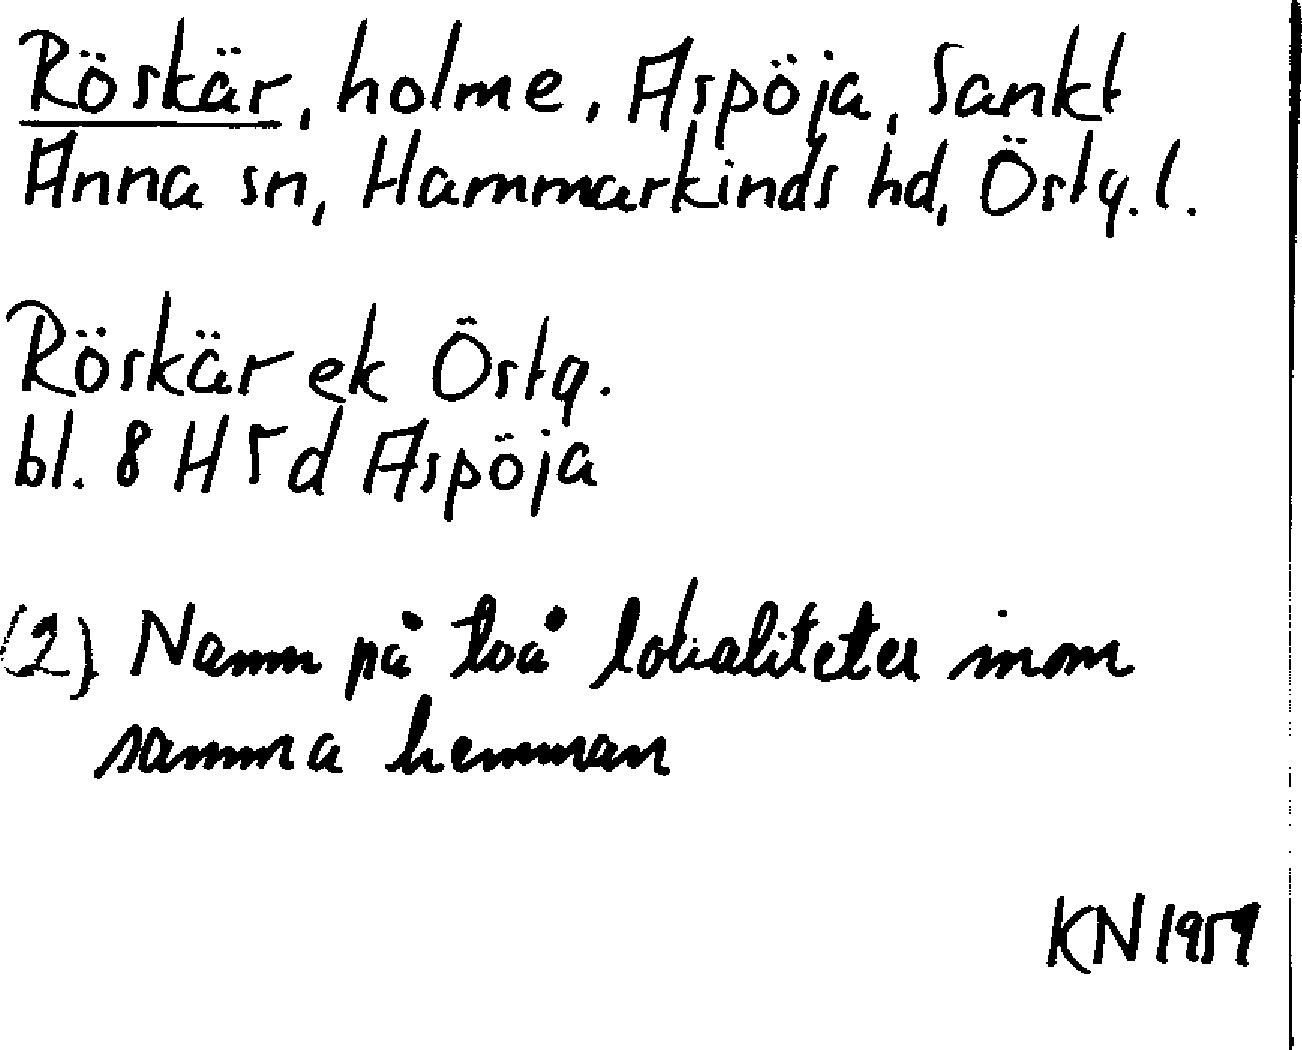 Röskär, holme, Aspöja, Sankt
Anna sn, Hammarkinds hd, Östg. l.
Röskär ek Östg.
bl. 8 H 5 d Aspöja
(2) Namn på två lokaliteter inom
samma hemman
KN 1959